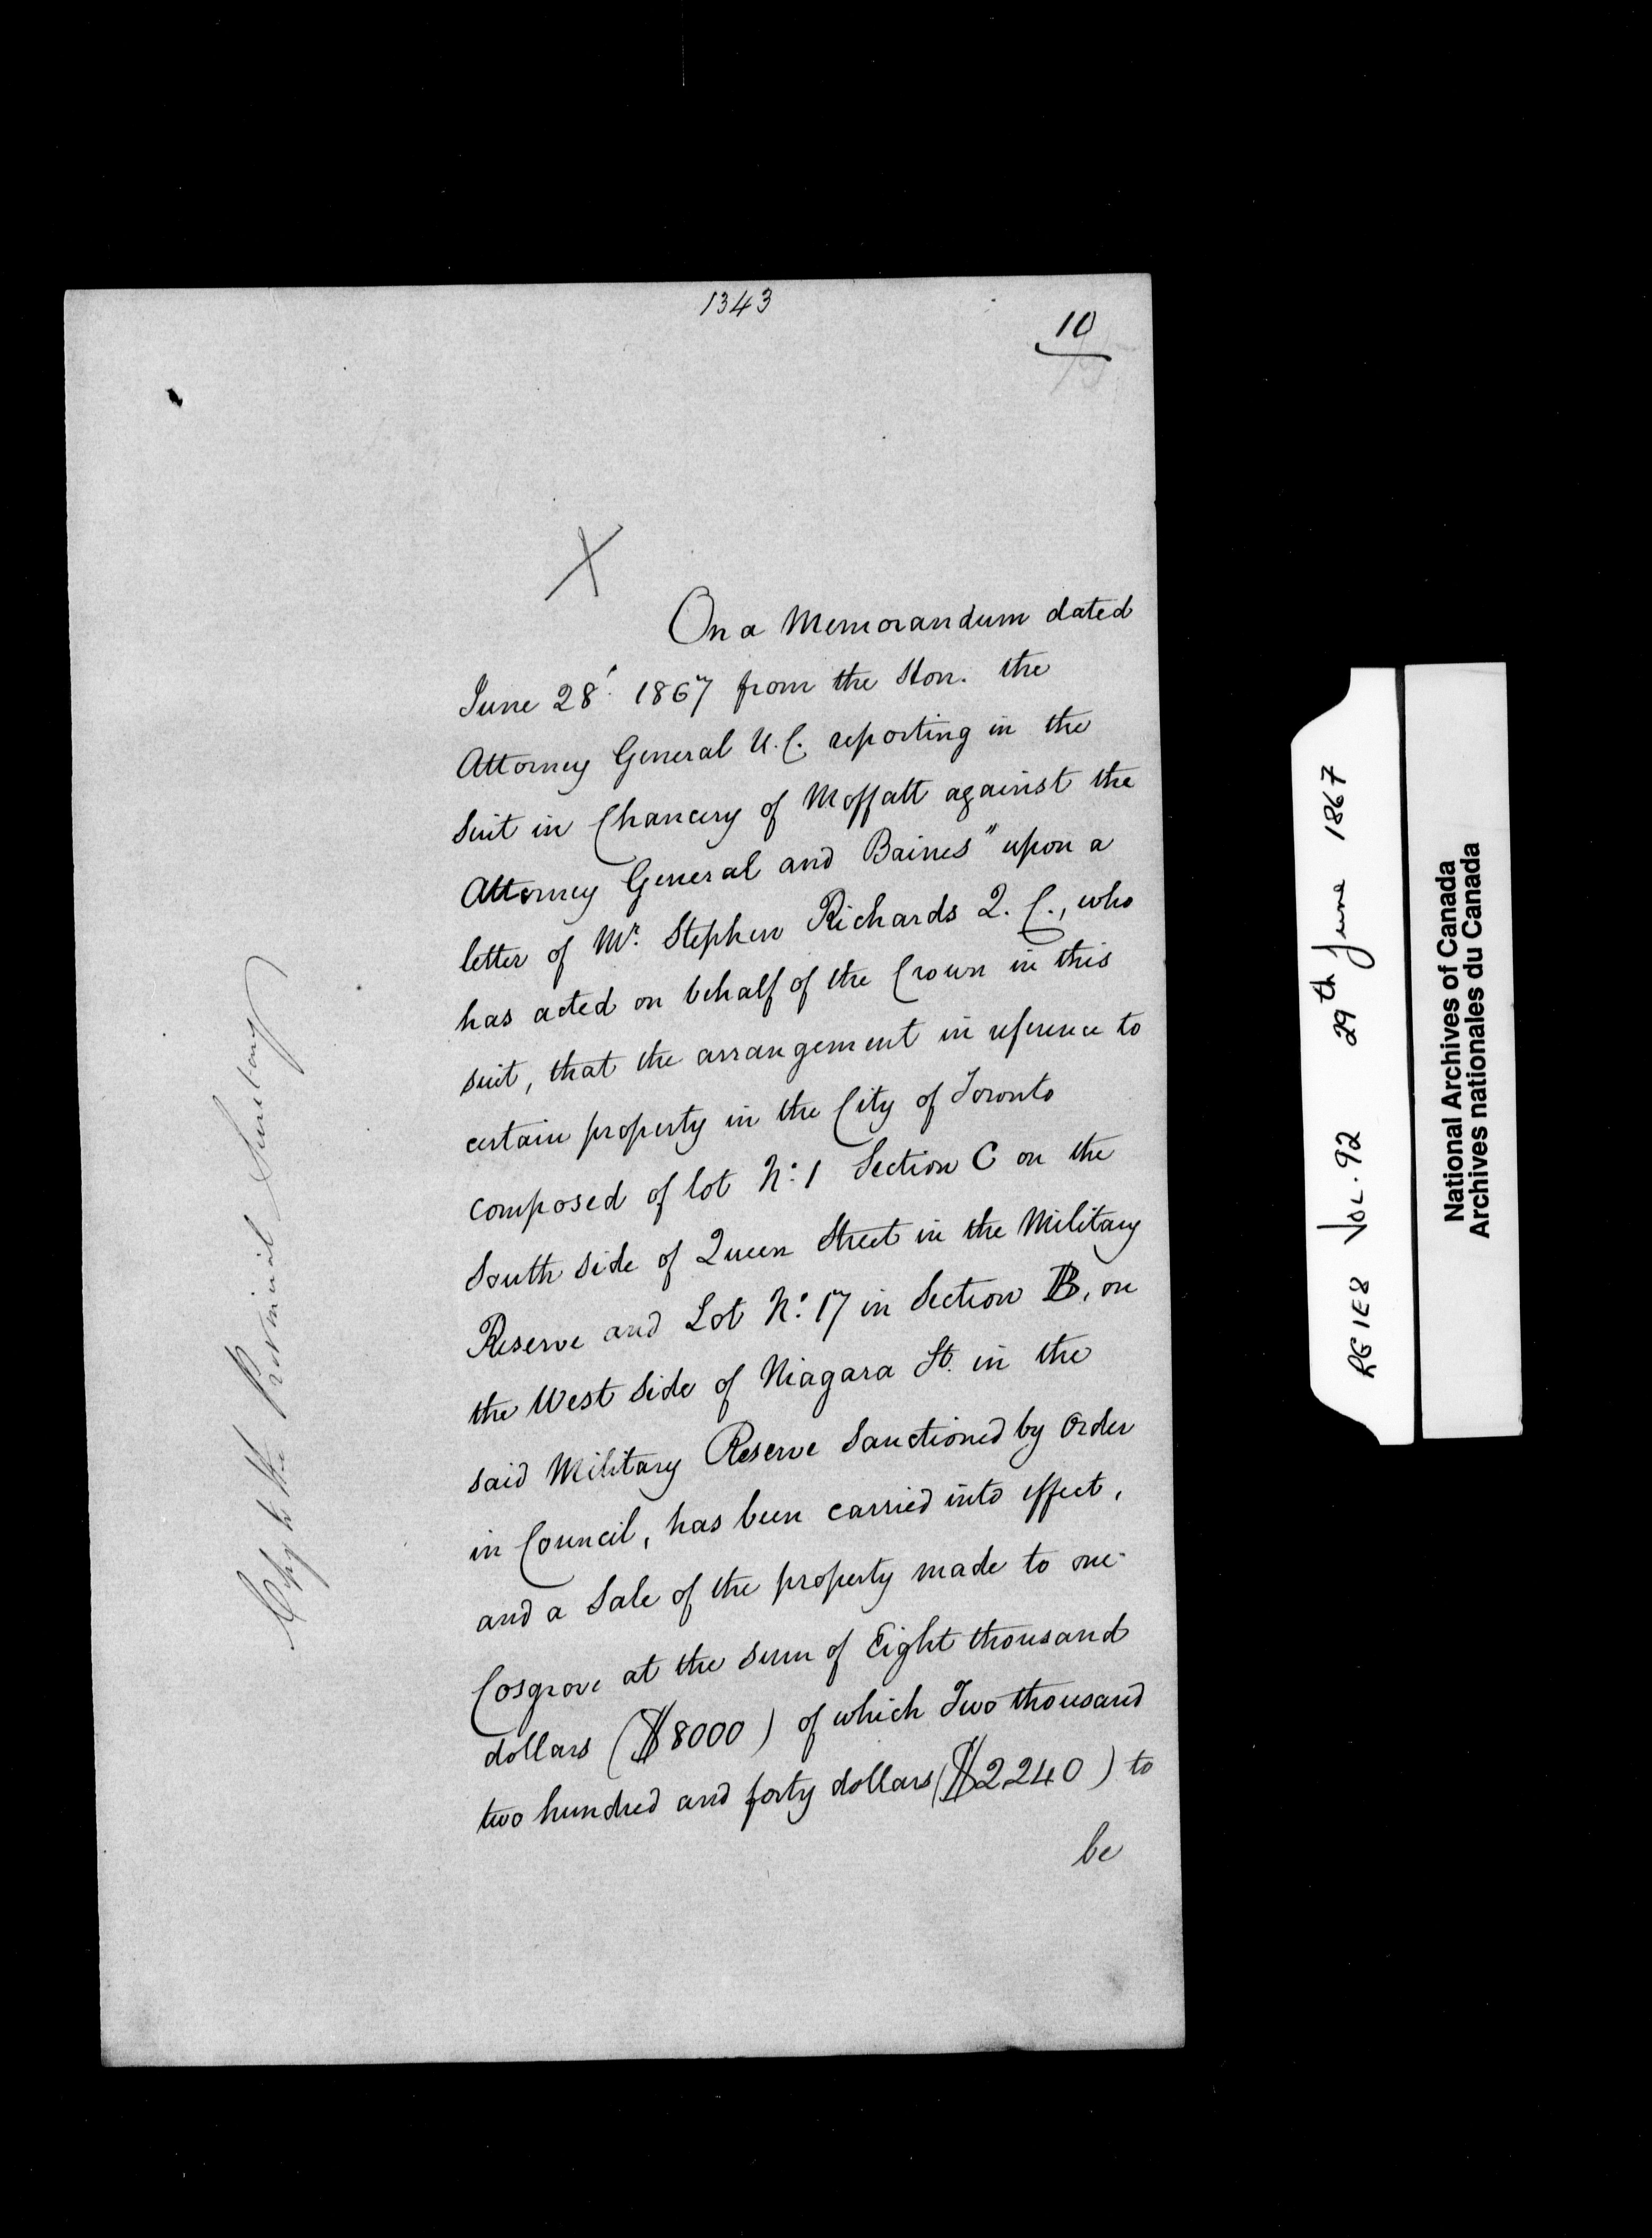 1343
10
On a Memorandum dated
June 28' 1867 from the Hon. the
Attorney General U.C. reporting in the
suit in Chancery of Moffatt against the
Attorney General and Baines" upon a
letter of Mr. Stephen Richards Q.C., who
has acted on behalf of the Crown in this
suit, that the arrangement in reference to
certain property in the City of Toronto
composed of lot No. 1 Section C on the
South side of Queen Street in the Military
Reserve and Lot No. 17 in Section B, on
the West side of Niagara St. in the
said Military Reserve sanctioned by Order
in Council, has been carried into effect,
and a Sale of the property made to one
Cosgrove at the sum of Eight thousand
dollars ($8000) of which Two thousand
two hundred and forty dollars ($2240) to
be
Copy to the Provincial Secretary
RG 1E8 VOL. 92 29th June 1867
National Archives of Canada
Archives nationales du Canada